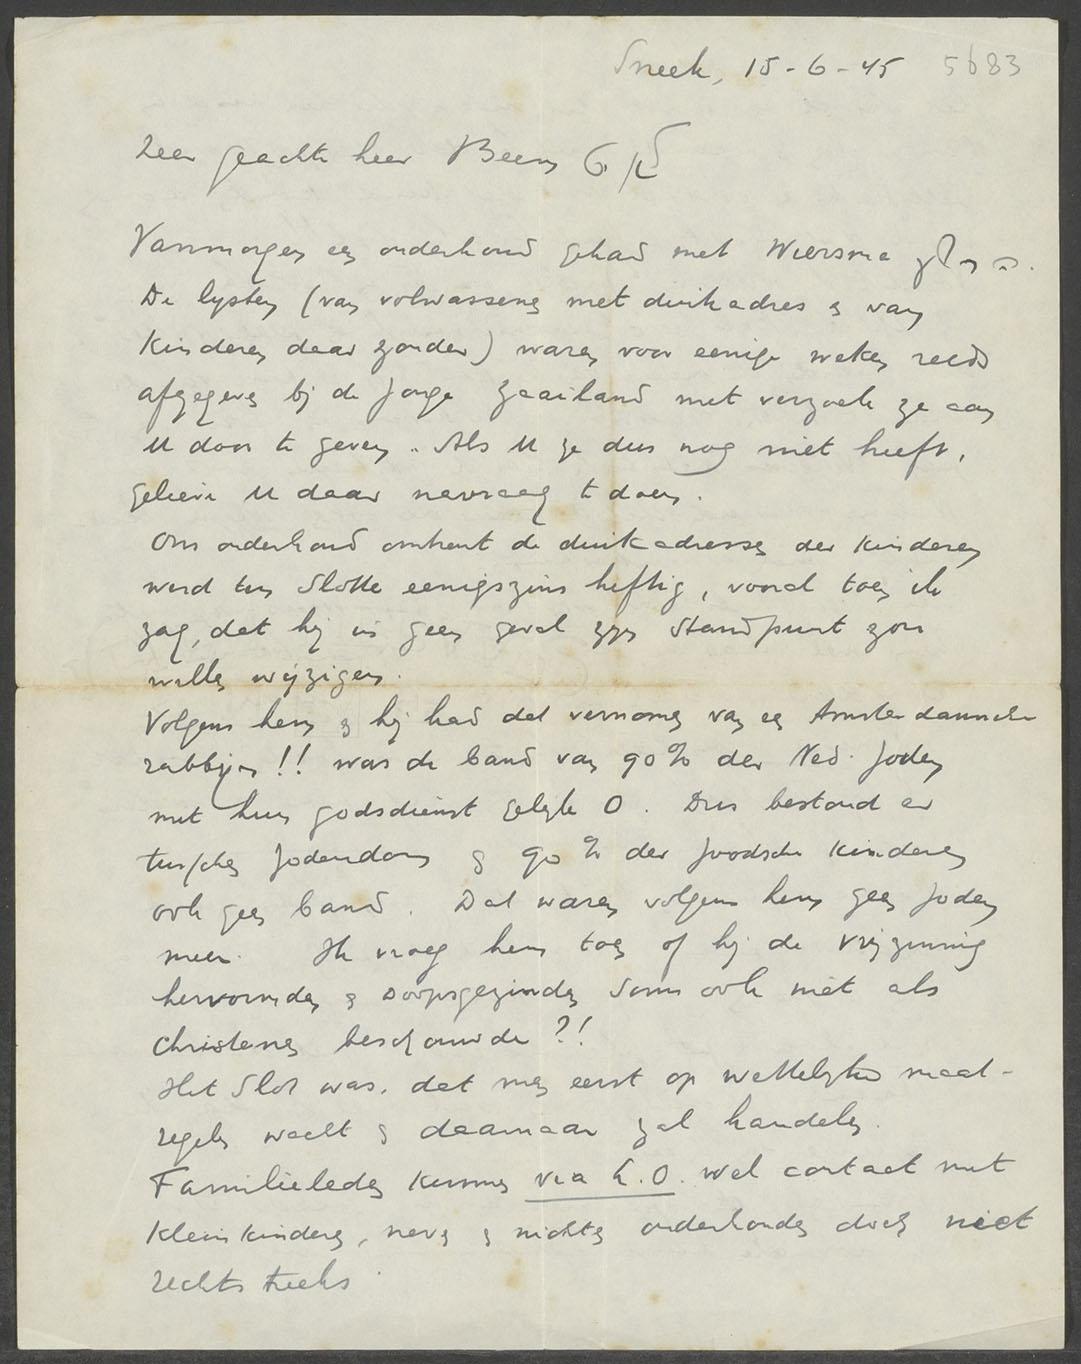 Sneek, 15-6-45 5683
Zeer geachte heer Beem
Vanmorgen een onderhoud gehad met Wiersma
De lysten (van volwassenen met duikadres en van
Kinderen daar zonder) waren voor eenige weken reeds
afgegeven bij de Jonge Zaailand met verzoek ze aan
U door te geven. Als U ze dus nog niet heeft,
gelieve U daar navraag te doen.
Ons onderhoud omtrent de duikadressen der kinderen
werd ten slotte eenigszins heftig, vooral toen ik
zag, dat hij in geen geval zijn standpunt zou
willen wijzigen.
Volgens hem en hij had dat vernomen van een Amsterdamsche
rabbijn!! was de band van 90% der Ned. Joden
met hun godsdienst gelyk 0. Dus bestond er
tusschen Jodendom en 90% der Joodsche kinderen
ook geen band. Dat waren volgens hem geen Joden
meer. Ik vroeg hem toen of hij de vrijzinnig
hervormden en Doopsgezinden soms ook niet als
christenen beschouwde?!
Het slot was, dat men eerst op wettelyke maat-
regelen wacht en daarnaar zal handelen.
Familieleden kunnen via L.O. wel contact met
Kleinkinderen, neven en nichten onderhouden doch niet
rechtstreeks.